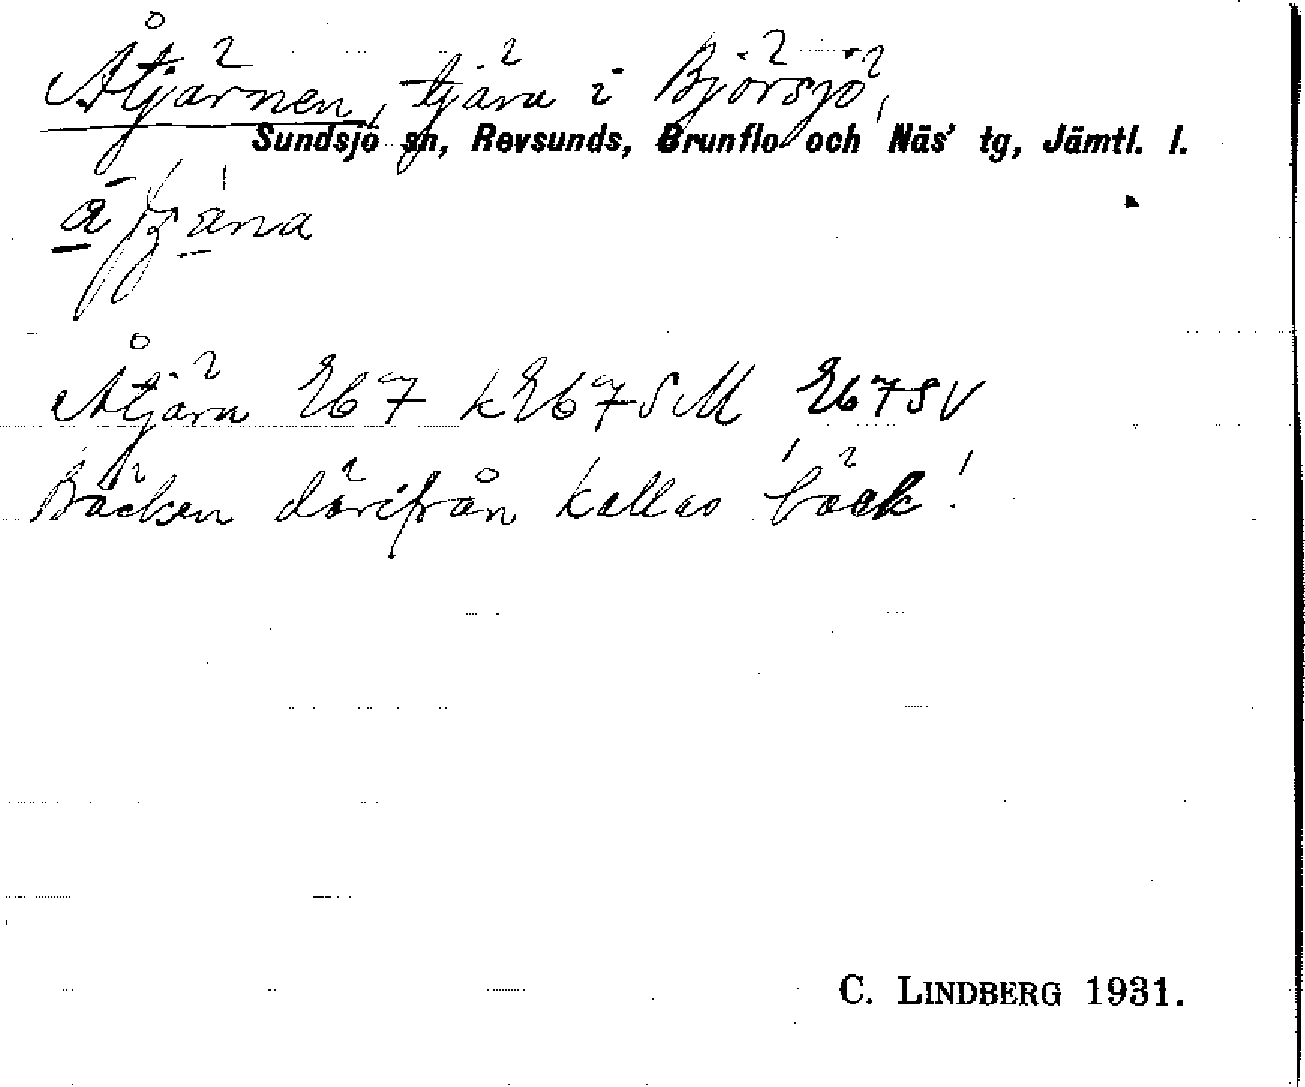 Åtjärnen, tjärn i Björsjö,
Sundsjö sn, Revsunds, Brunflo och Näs' tg, Jämtl. l.
Åtjärn E67 kE67SM E67SV
Bäcken därifrån kallas 'bäck'.
C. LINDBERG 1931.